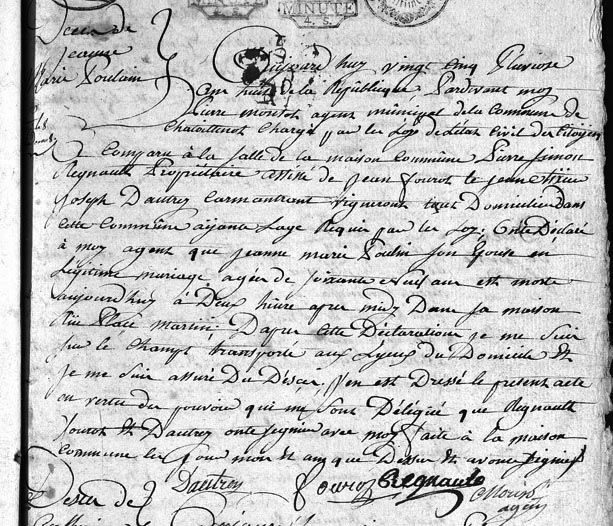 MINUTE
4. s.
Deces de
jeanne
Marie Poulain
Aujourdhuy vingt cinq Pluviose
an huit de la République Pardevant moy
Pierre agent municipal de la Commune de
chargé par les Loix de létat Civil des Citoyens
Est Comparu à la salle de la maison Commune Pierre Simon
Regnault Propriétaire assisté de jean le jeune et
joseph Dautrey vignerons tout Domicilier dans
Cette Commune ayants Lage Requis par les Loy: Ont Déclaré
à moy agent que jeanne marie Poulin son Epouse en
Légitime mariage agée de soixante neuf ans est morte
aujourdhuy à Deux heure apres midy Dans sa maison
Place Martin; Dapres cette Déclaration je me suis
sur le Champt transporté aux Lyeux du Domicile &
je me suis assuré Du Déces, j'en est Dressé le present acte
en vertu des pouvoir qui me sont Délégué que Regnault
& Dautrey onts signés avec moy faite à la maison
Commune les jour mois & an que Dessus & avons signés
Dautrey Regnault
agent
Deces de